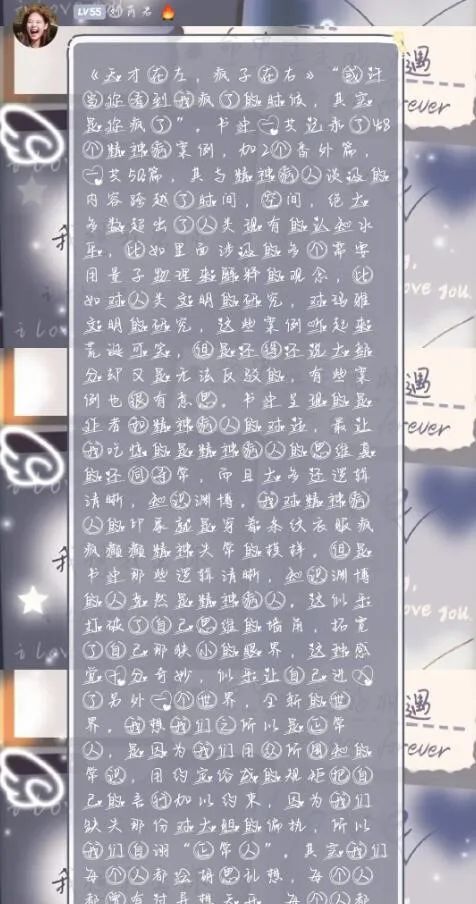 LV55 刘芮君
《天才在左，疯子在右》“或许
当你看到我疯了的时候，其实
是你疯了”。书中一共记录了48
个精神病案例，加2个番外篇，
一共50篇，其与精神病人谈及的
内容跨越了时间，空间，绝大
多数超出了人类现有的认知水
平，比如里面涉及的多个需要
用量子物理来解释的观念，比
如对人类文明的研究，对玛雅
文明的研究，这些案例听起来
荒诞不实，但是还得还说大部
分却又是无法反驳的，有些案
例也很有意思。书中呈现的是
作者和精神病人的对话，最让
我吃惊的是精神病人的思维真
的还同寻常，而且大多还逻辑
清晰，知识渊博，我对精神病
人的印象就是穿着条纹衣服疯
疯癫癫精神失常的模样，但是
书中那些逻辑清晰，知识渊博
的人竟然是精神病人，这似乎
打破了自己思维的墙角，拓宽
了自己那狭小的眼界，这种感
觉十分奇妙，似乎让自己进入
了另外一个世界，全新的世
界，我想我们之所以是正常
人，是因为我们用众所周知的
常识，用约定俗成的规矩把自
己的言行加以约束，因为我们
缺失那份对大胆的偏执，所以
我们自诩“正常人”，其实我们
每个人都会胡思乱想，每个人
都常有对异想天开，每个人都
遇
forever
love you
i lo
遇
forever
ove you.
我
遇
ever